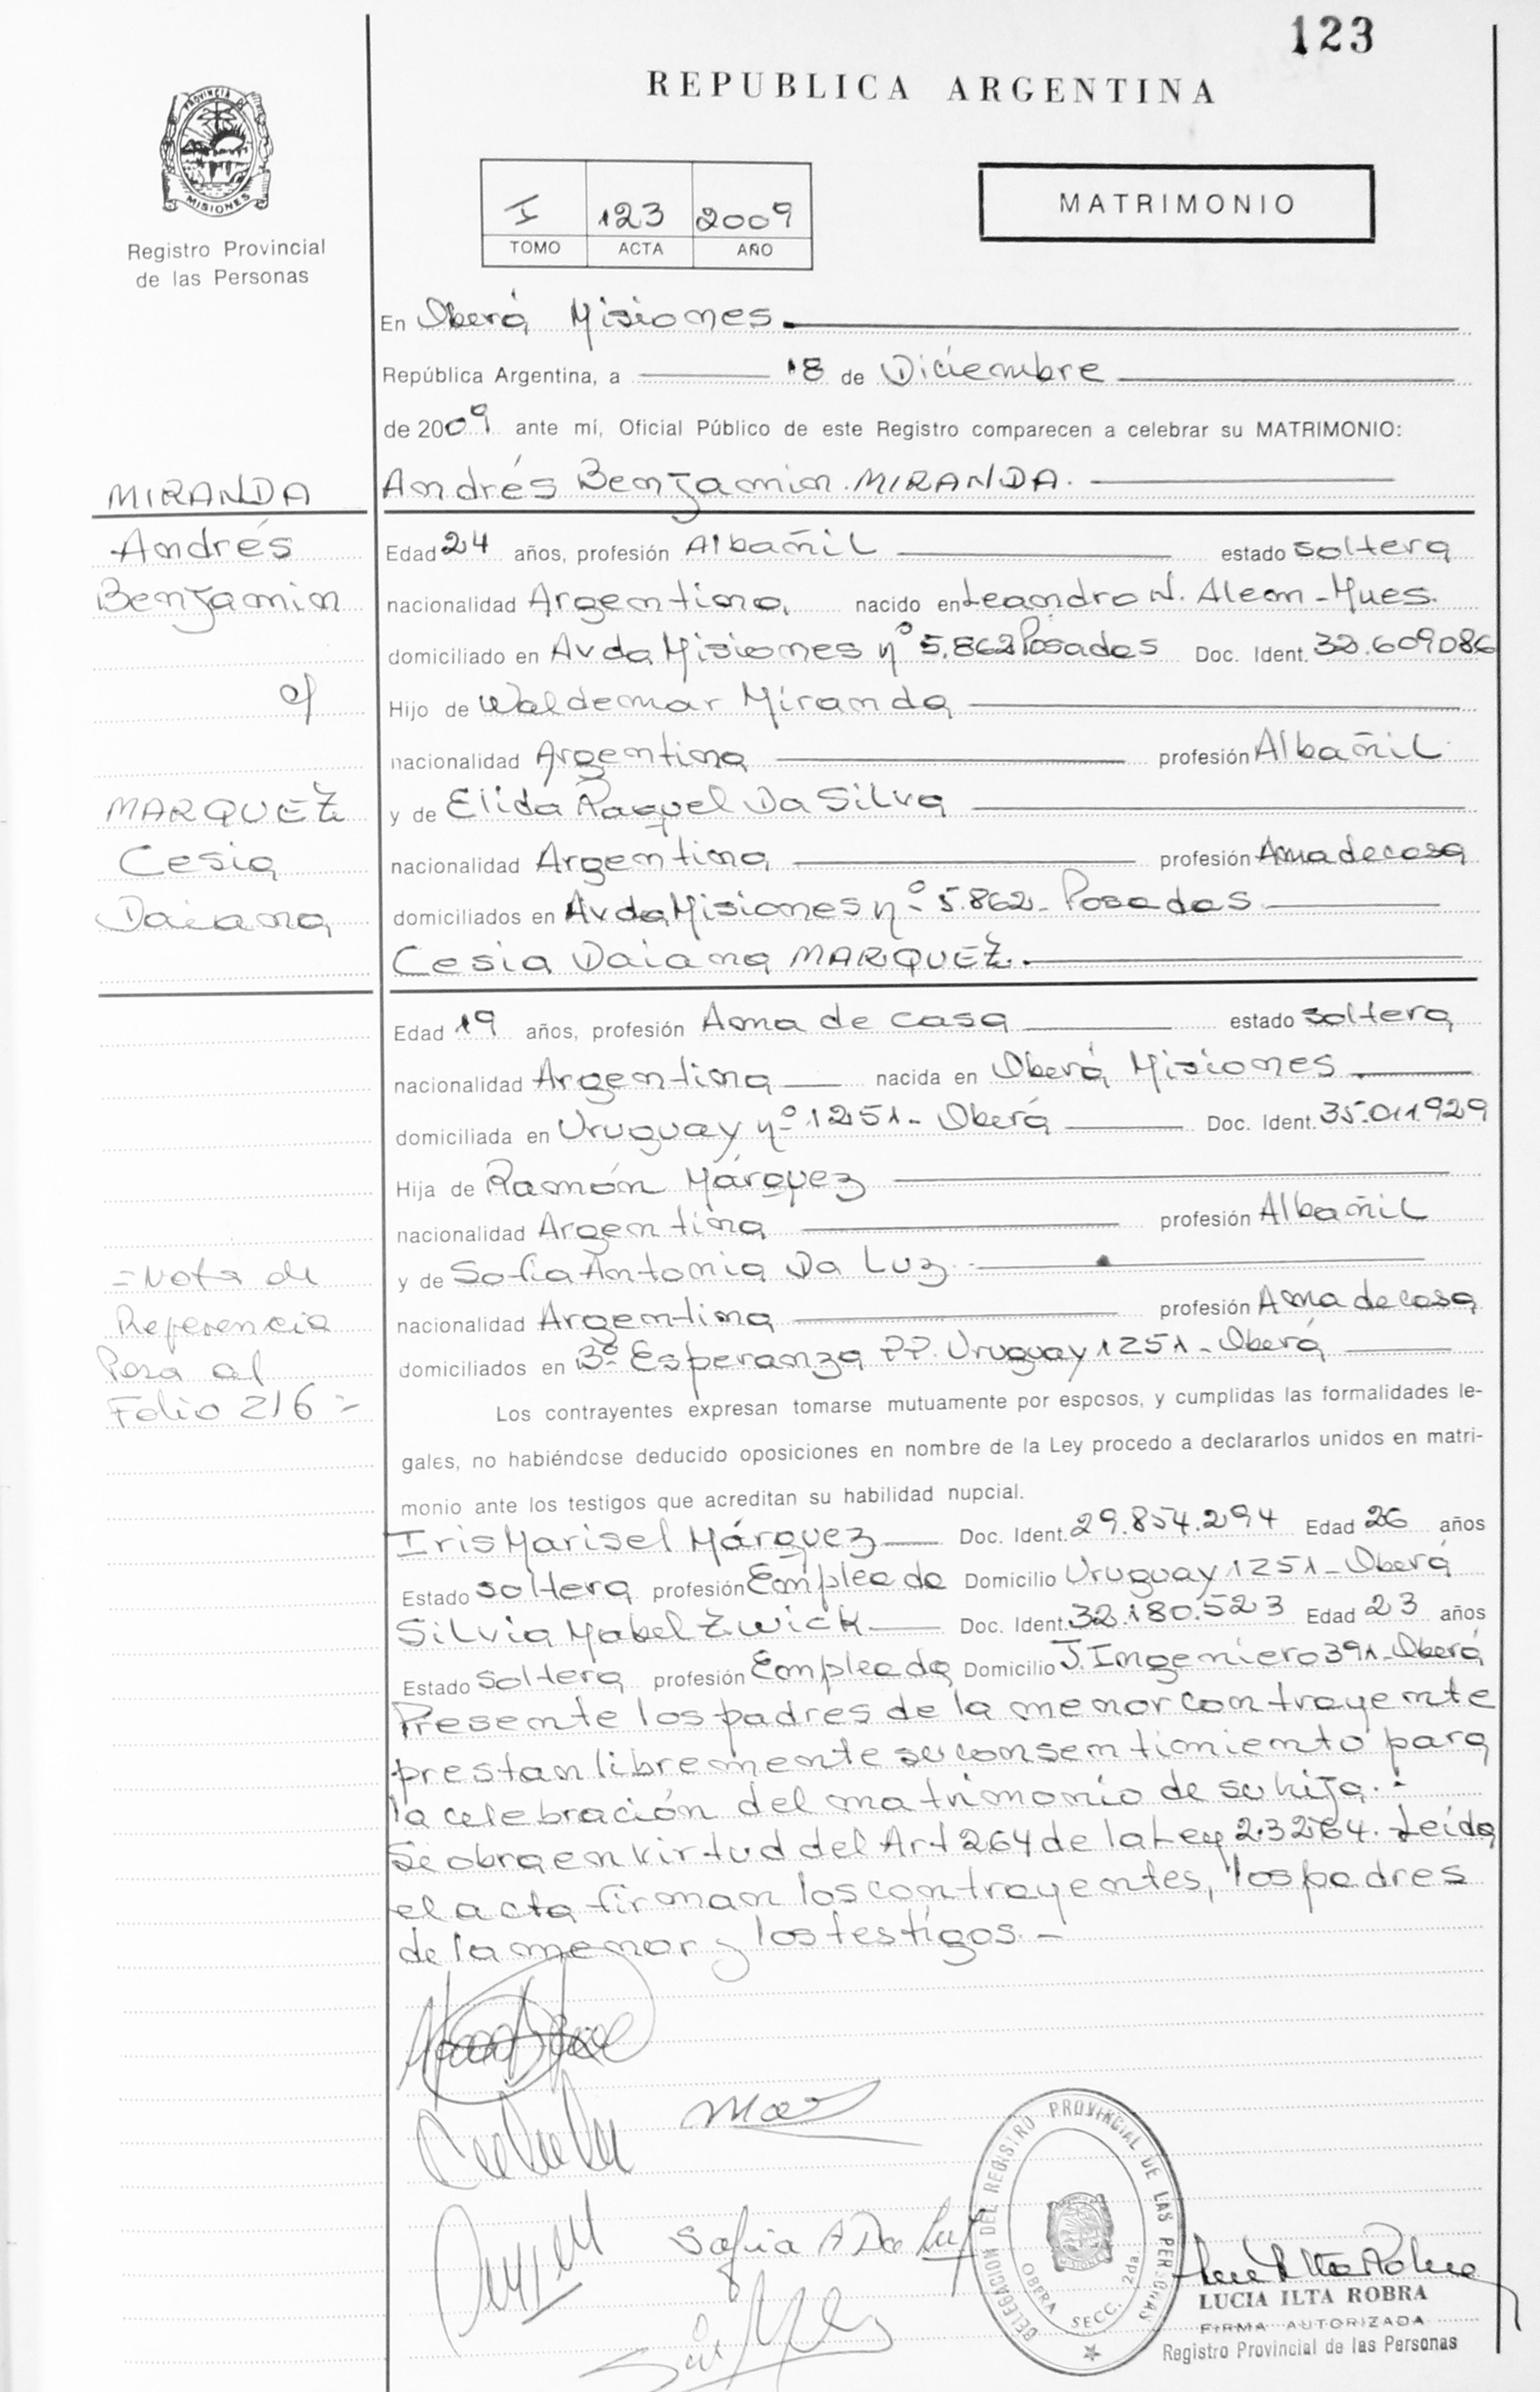 123
REPUBLICA ARGENTINA
PROVINCIA DE
MISIONES
Registro Provincial
de las Personas
I 123 2009
TOMO ACTA AÑO
MATRIMONIO
En Oberá Misiones.
República Argentina, a 18 de Diciembre
de 2009 ante mí, Oficial Público de este Registro comparecen a celebrar su MATRIMONIO:
MIRANDA
Andrés
Benjamin
c/
MARQUEZ
Cesia
Daiana
Andrés Benjamin MIRANDA.
Edad 24 años, profesión Albañil estado soltera
nacionalidad Argentina nacido en Leandro N. Alem - Mnes.
domiciliado en Avda Misiones nº 5.862 Posadas Doc. Ident. 32.609086
Hijo de Waldemar Miranda
nacionalidad Argentina profesión Albañil
y de Elida Raquel Da Silva
nacionalidad Argentina profesión Ama de casa
domiciliados en Avda Misiones nº 5.862 - Posadas
Cesia Daiana MARQUEZ.
Edad 19 años, profesión Ama de casa estado soltera
nacionalidad Argentina nacida en Oberá Misiones
domiciliada en Uruguay nº 1251 - Oberá Doc. Ident. 35.011929
Hija de Ramón Márquez
nacionalidad Argentina profesión Albañil
y de Sofia Antonia Da Luz
nacionalidad Argentina profesión Ama de casa
domiciliados en Bº Esperanza PP. Uruguay 1251 - Oberá
= Nota de
Referencia
Pasa al
Folio 216 =
Los contrayentes expresan tomarse mutuamente por esposos, y cumplidas las formalidades le-
gales, no habiéndose deducido oposiciones en nombre de la Ley procedo a declararlos unidos en matri-
monio ante los testigos que acreditan su habilidad nupcial.
Iris Marisel Márquez Doc. Ident. 29.854.294 Edad 26 años
Estado soltera profesión Empleada Domicilio Uruguay 1251 - Oberá
Silvia Mabel Zwick Doc. Ident. 32.180.523 Edad 23 años
Estado soltera profesión Empleada Domicilio J. Ingeniero 391 - Oberá
Presente los padres de la menor contrayente
prestan libremente su consentimiento para
la celebración del matrimonio de su hija.-
Se obra en virtud del Art 264 de la Ley 23264. Leída
el acta firman los contrayentes, los padres
de la menor y los testigos. -
Sofia A Da Luz
DELEGACION DEL REGISTRO PROVINCIAL DE LAS PERSONAS
OBERA SECC. 2da
LUCIA ILTA ROBRA
FIRMA AUTORIZADA
Registro Provincial de las Personas